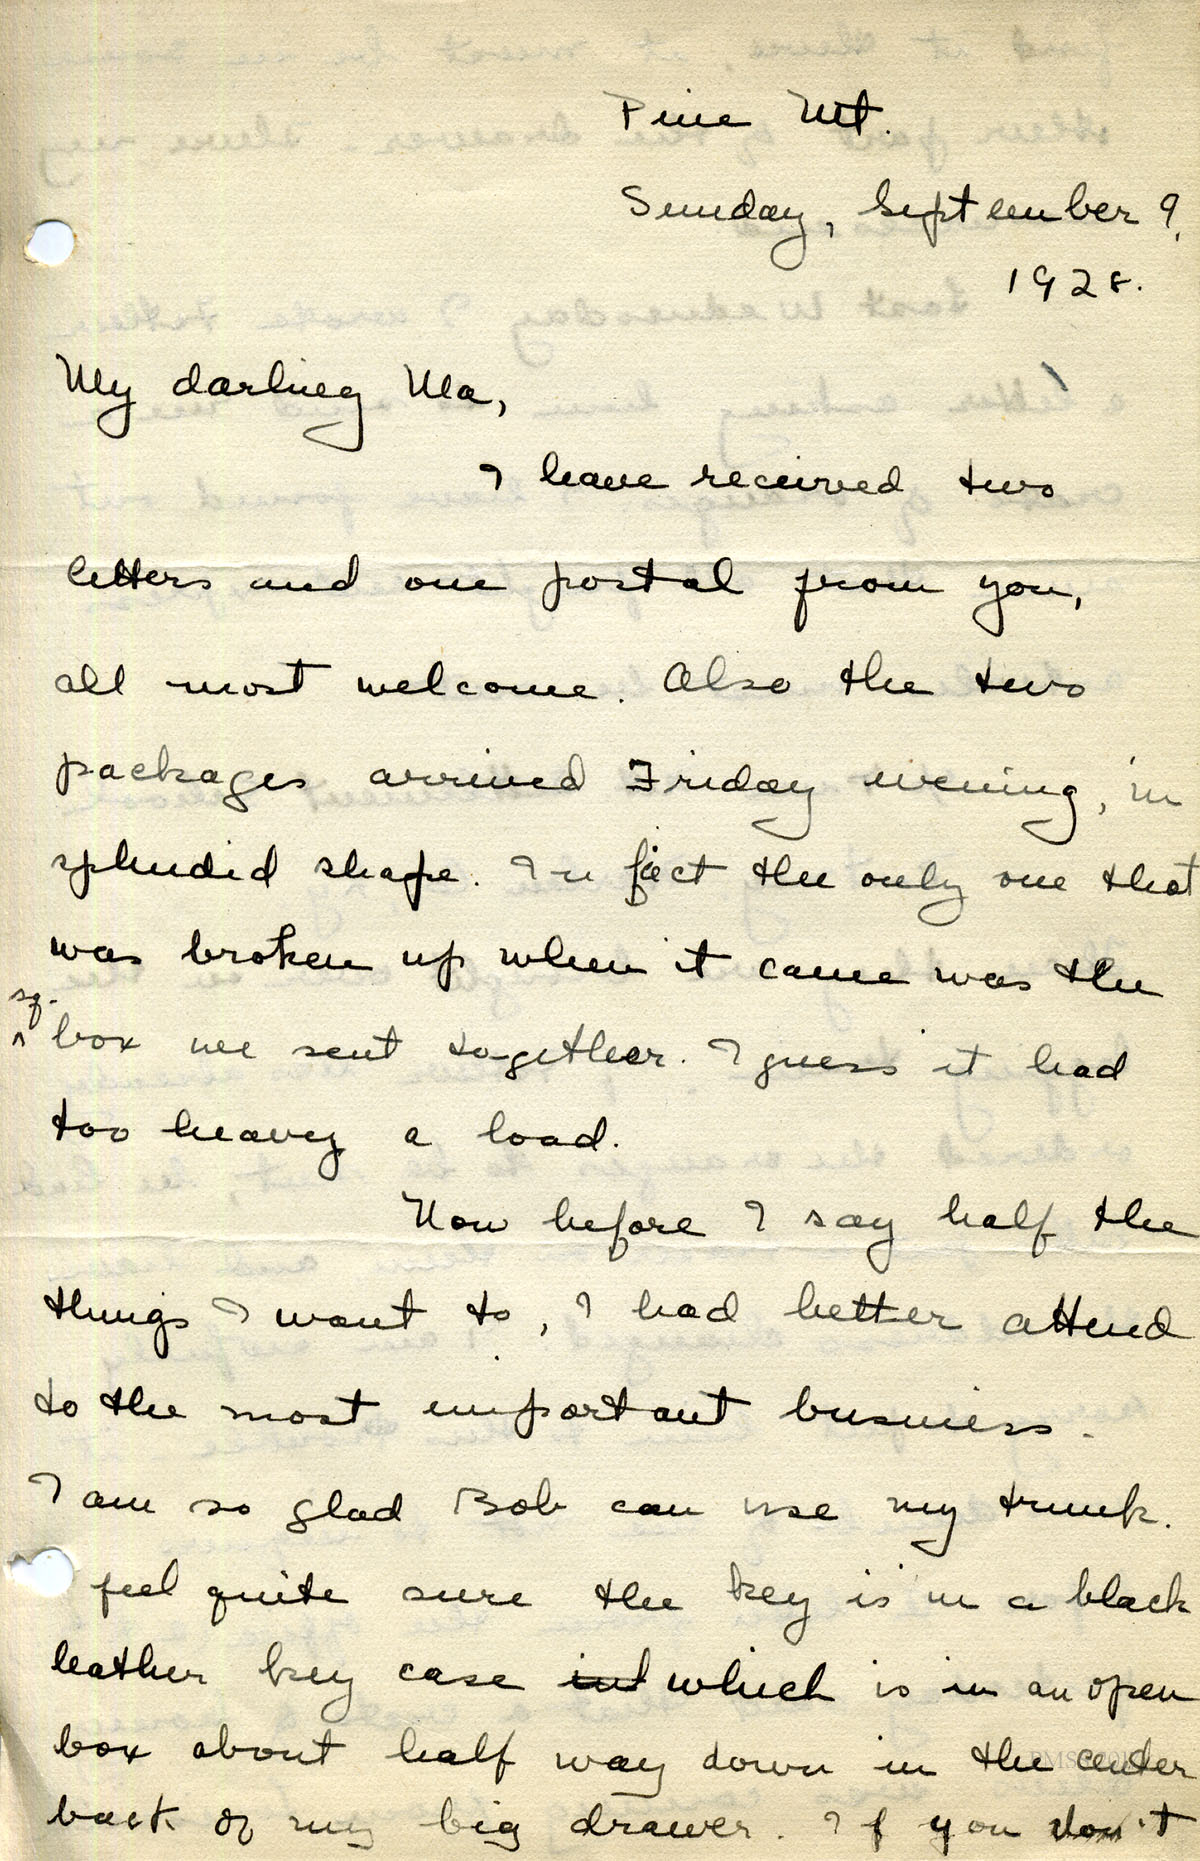 Pine Mt.
Sunday, September 9,
1928.
My darling Ma,
I have received two
letters and one postal from you,
all most welcome. Also the two
packages arrived Friday evening, in
splendid shape. In fact the only one that
was broken up when it came was the
sq.
^ box we sent together. I guess it had
too heavy a load.
Now before I say half the
things I want to, I had better attend
to the most important business.
I am so glad Bob can use my trunk.
feel quite sure the key is in a black
leather key case which is in an open
box about half way down in the center
back of my big drawer. If you don't